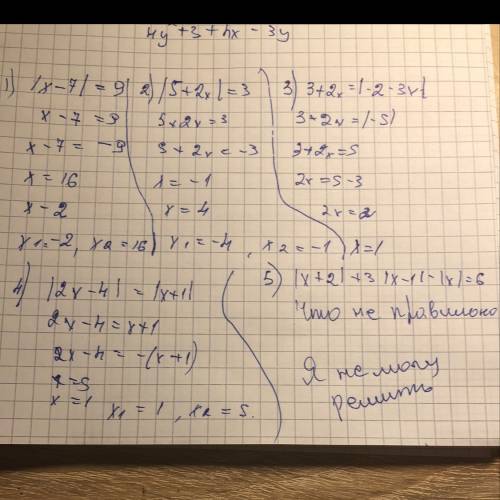 4y + 3 + 4x - 3y
1) |x-7| = 9
x - 7 = 9
x - 7 = -9
x = 16
x - 2
x1 = -2, x2 = 16
2) |5+2x| = 3
5+2x = 3
5+2x = -3
x = -1
x = 4
x1 = -4, x2 = -1
3) 3+2x = |-2-3x|
3+2x = |-5|
3+2x = 5
2x = 5-3
2x = 2
x = 1
4) |2x-4| = |x+1|
2x-4 = x+1
2x-4 = -(x+1)
x = 5
x = 1
x1 = 1, x2 = 5.
5) |x+2| + 3|x-1| - |x| = 6
Что не правильно
Я не могу
решить